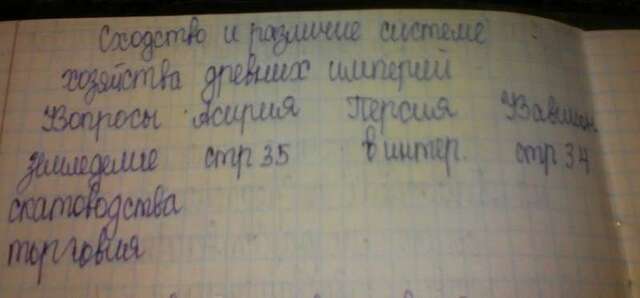 Сходство и различие системе
хозяйства древних империй
Вопросы Асирия Персия Вавилон
земледелие стр 35 в интер. стр 34
скатоводства
торговия